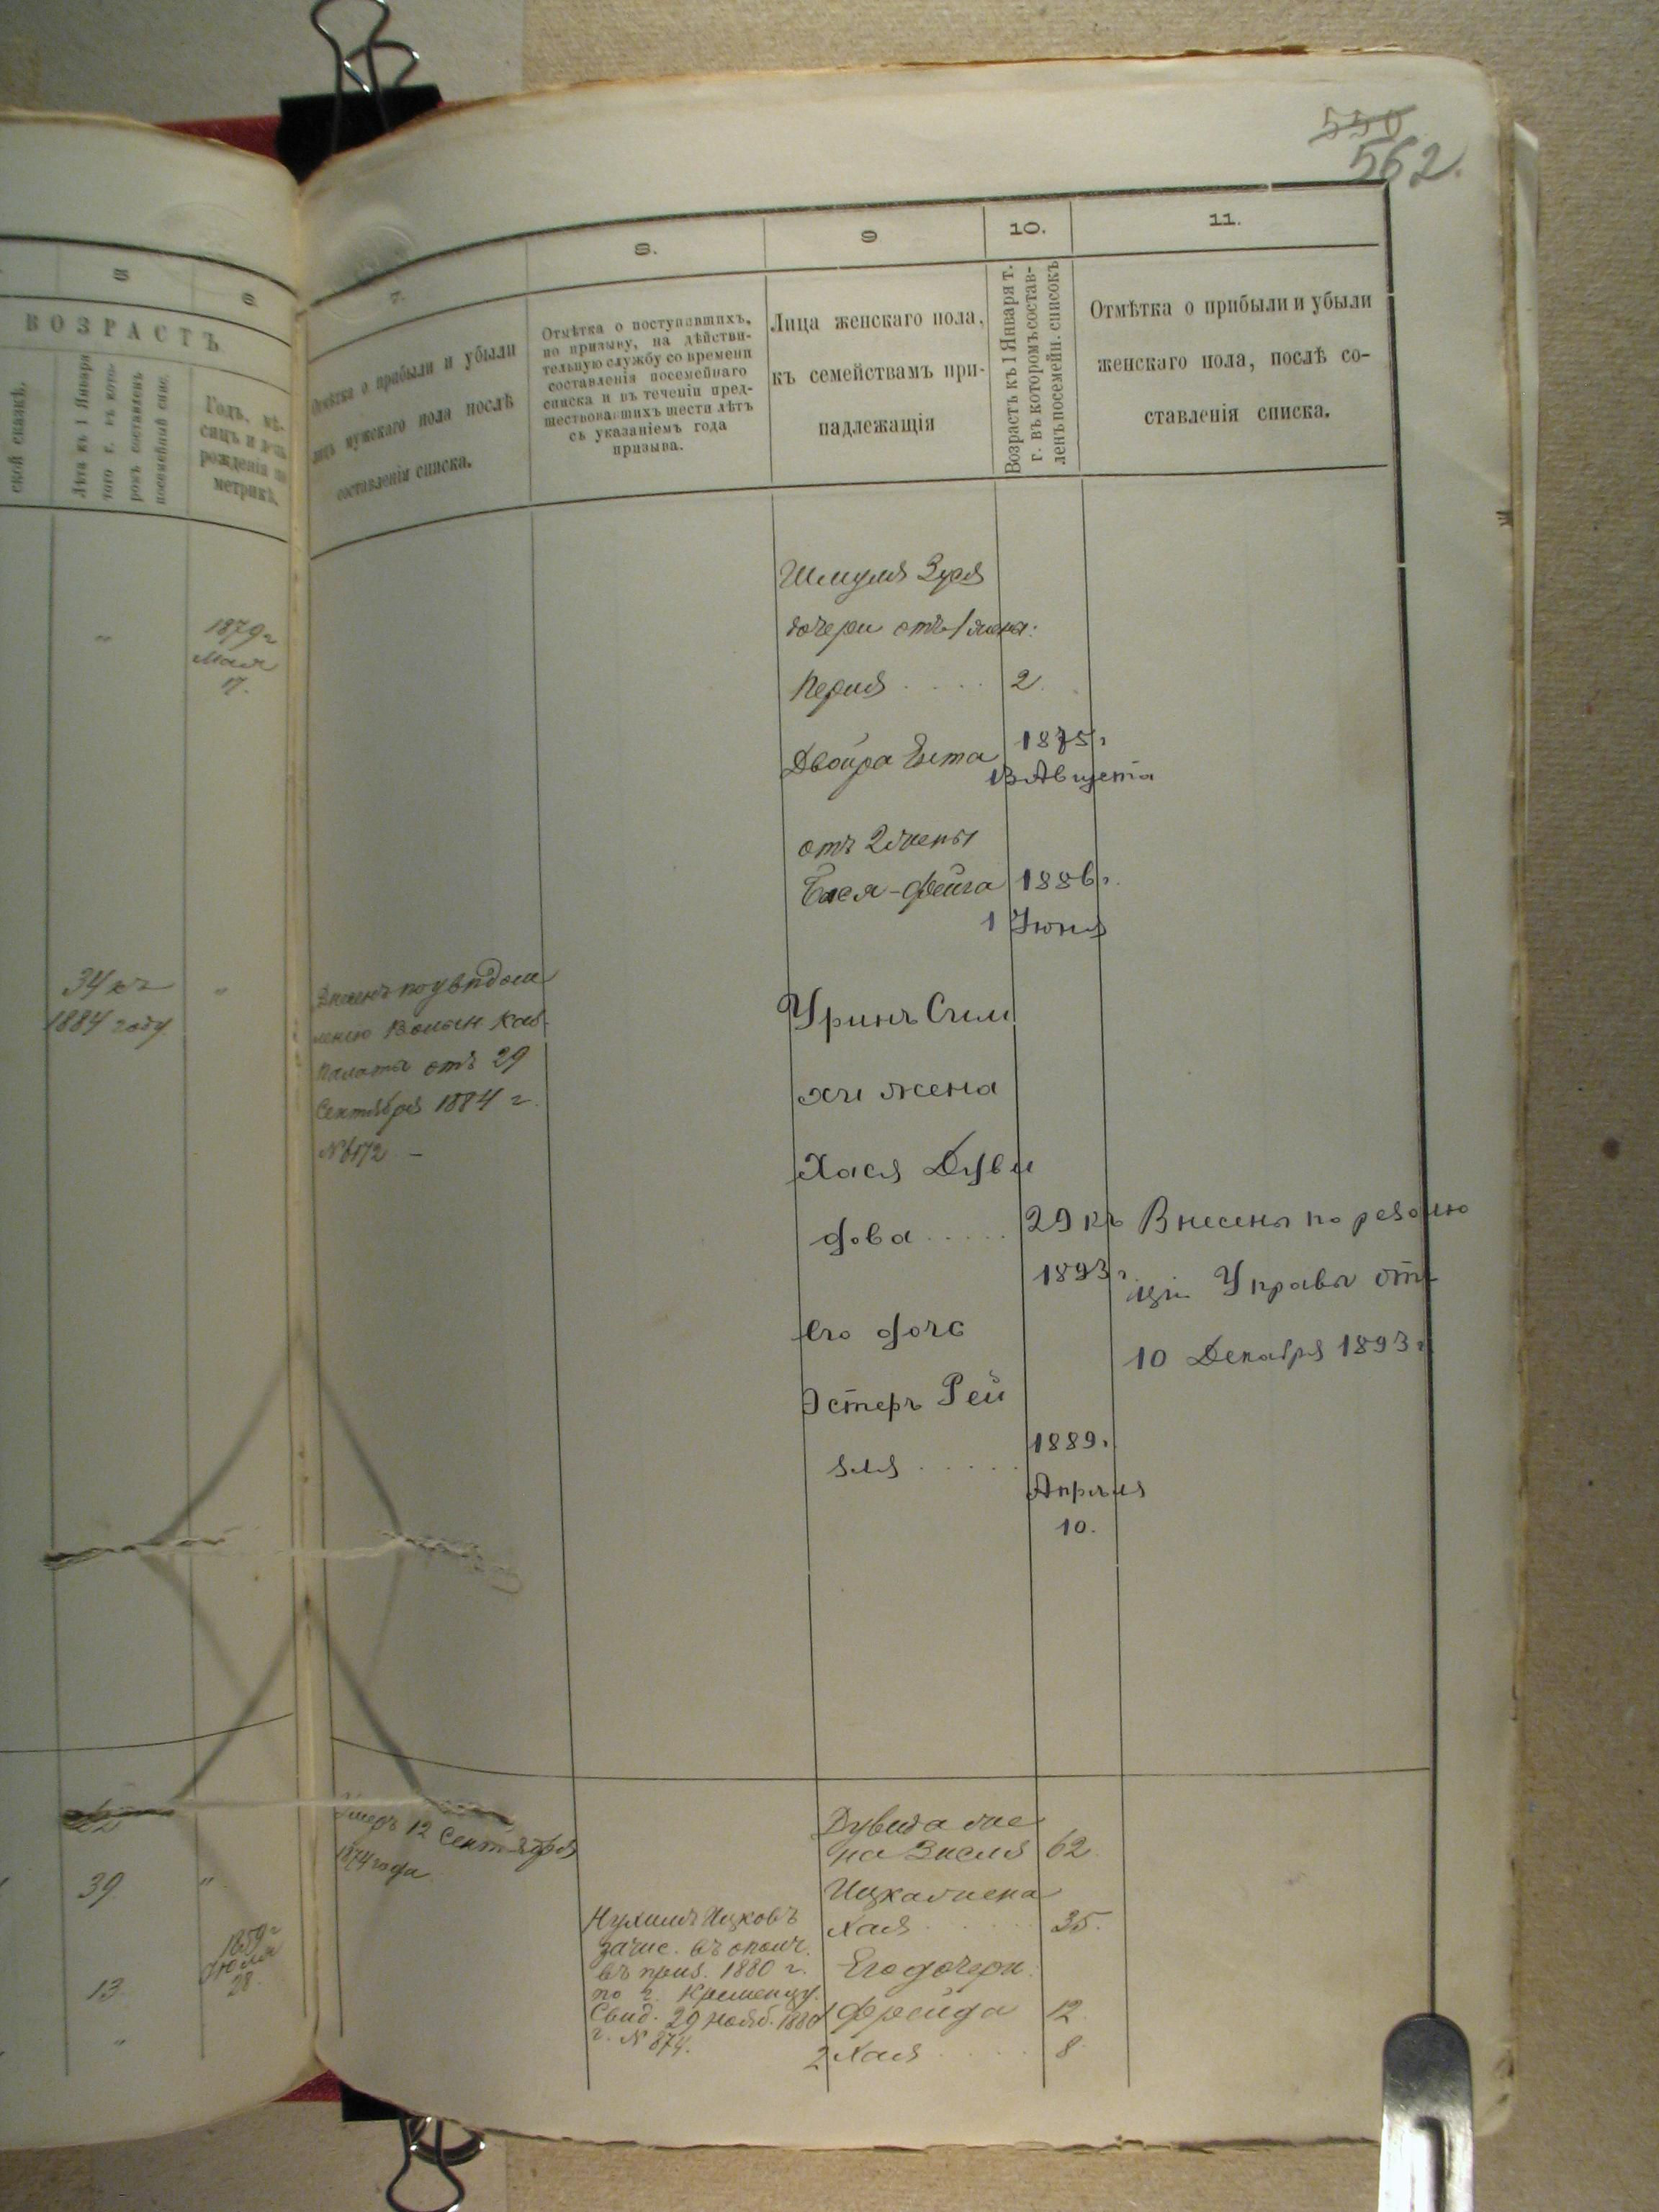 550
562.
5
6.
7.
8.
9
10.
11.
ВОЗРАСТЪ
ской сказкѣ.
Лѣта къ 1 Января
того г. въ кото-
ромъ составленъ
посемейный спис.
Годъ, мѣ-
сяцъ и день
рожденія по
метрикѣ.
Отмѣтка о прибыли и убыли
лицъ мужскаго пола послѣ
составленія списка.
Отмѣтка о поступившихъ,
по призыву, на дѣйстви-
тельную службу со времени
составленія посемейнаго
списка и въ теченіи пред-
шествовавшихъ шести лѣтъ
съ указаніемъ года
призыва.
Лица женскаго пола,
къ семействамъ при-
надлежащія
Возрастъ къ 1 Января т.
г. въ которомъ состав-
ленъ посемейн. списокъ
Отмѣтка о прибыли и убыли
женскаго пола, послѣ со-
ставленія списка.
"
1879 г
Мая
17.
34 къ
1884 году
"
по увѣдом
лению Волын Каз.
Палаты отъ 29
Сентября 1884 г.
№ 6172 –
Шмуля Зуся
дочери отъ 1 жены:
Перля . . . . 2.
Двойра Ента 1875 г
13 Августа
отъ 2 жены
Бася-Фейга 1886 г.
1 Июня
Уринъ Сим
хи жена
Хася Дуви
дова . . . . . 29 къ
1893 г.
Внесены по резолю
ціи Управы отъ
10 Декабря 1893 г
Его дочь
Эстеръ Рей
зля . . . . . 1889 г
Апрѣля
10.
Умеръ 12 Сентября
1874 года
39
"
13
1859 г
Июля
28.
"
Нухимъ Ицковъ
зачис. въ ополч.
въ приз. 1880 г.
по г. Кременцу.
Свид. 29 нояб. 1880
г. № 874.
Дувида же
на Зисля 62
Ицка жена
Хая . . . . . 35.
Его дочери
1 Фрейда 12
2 Хая . . . . . 8